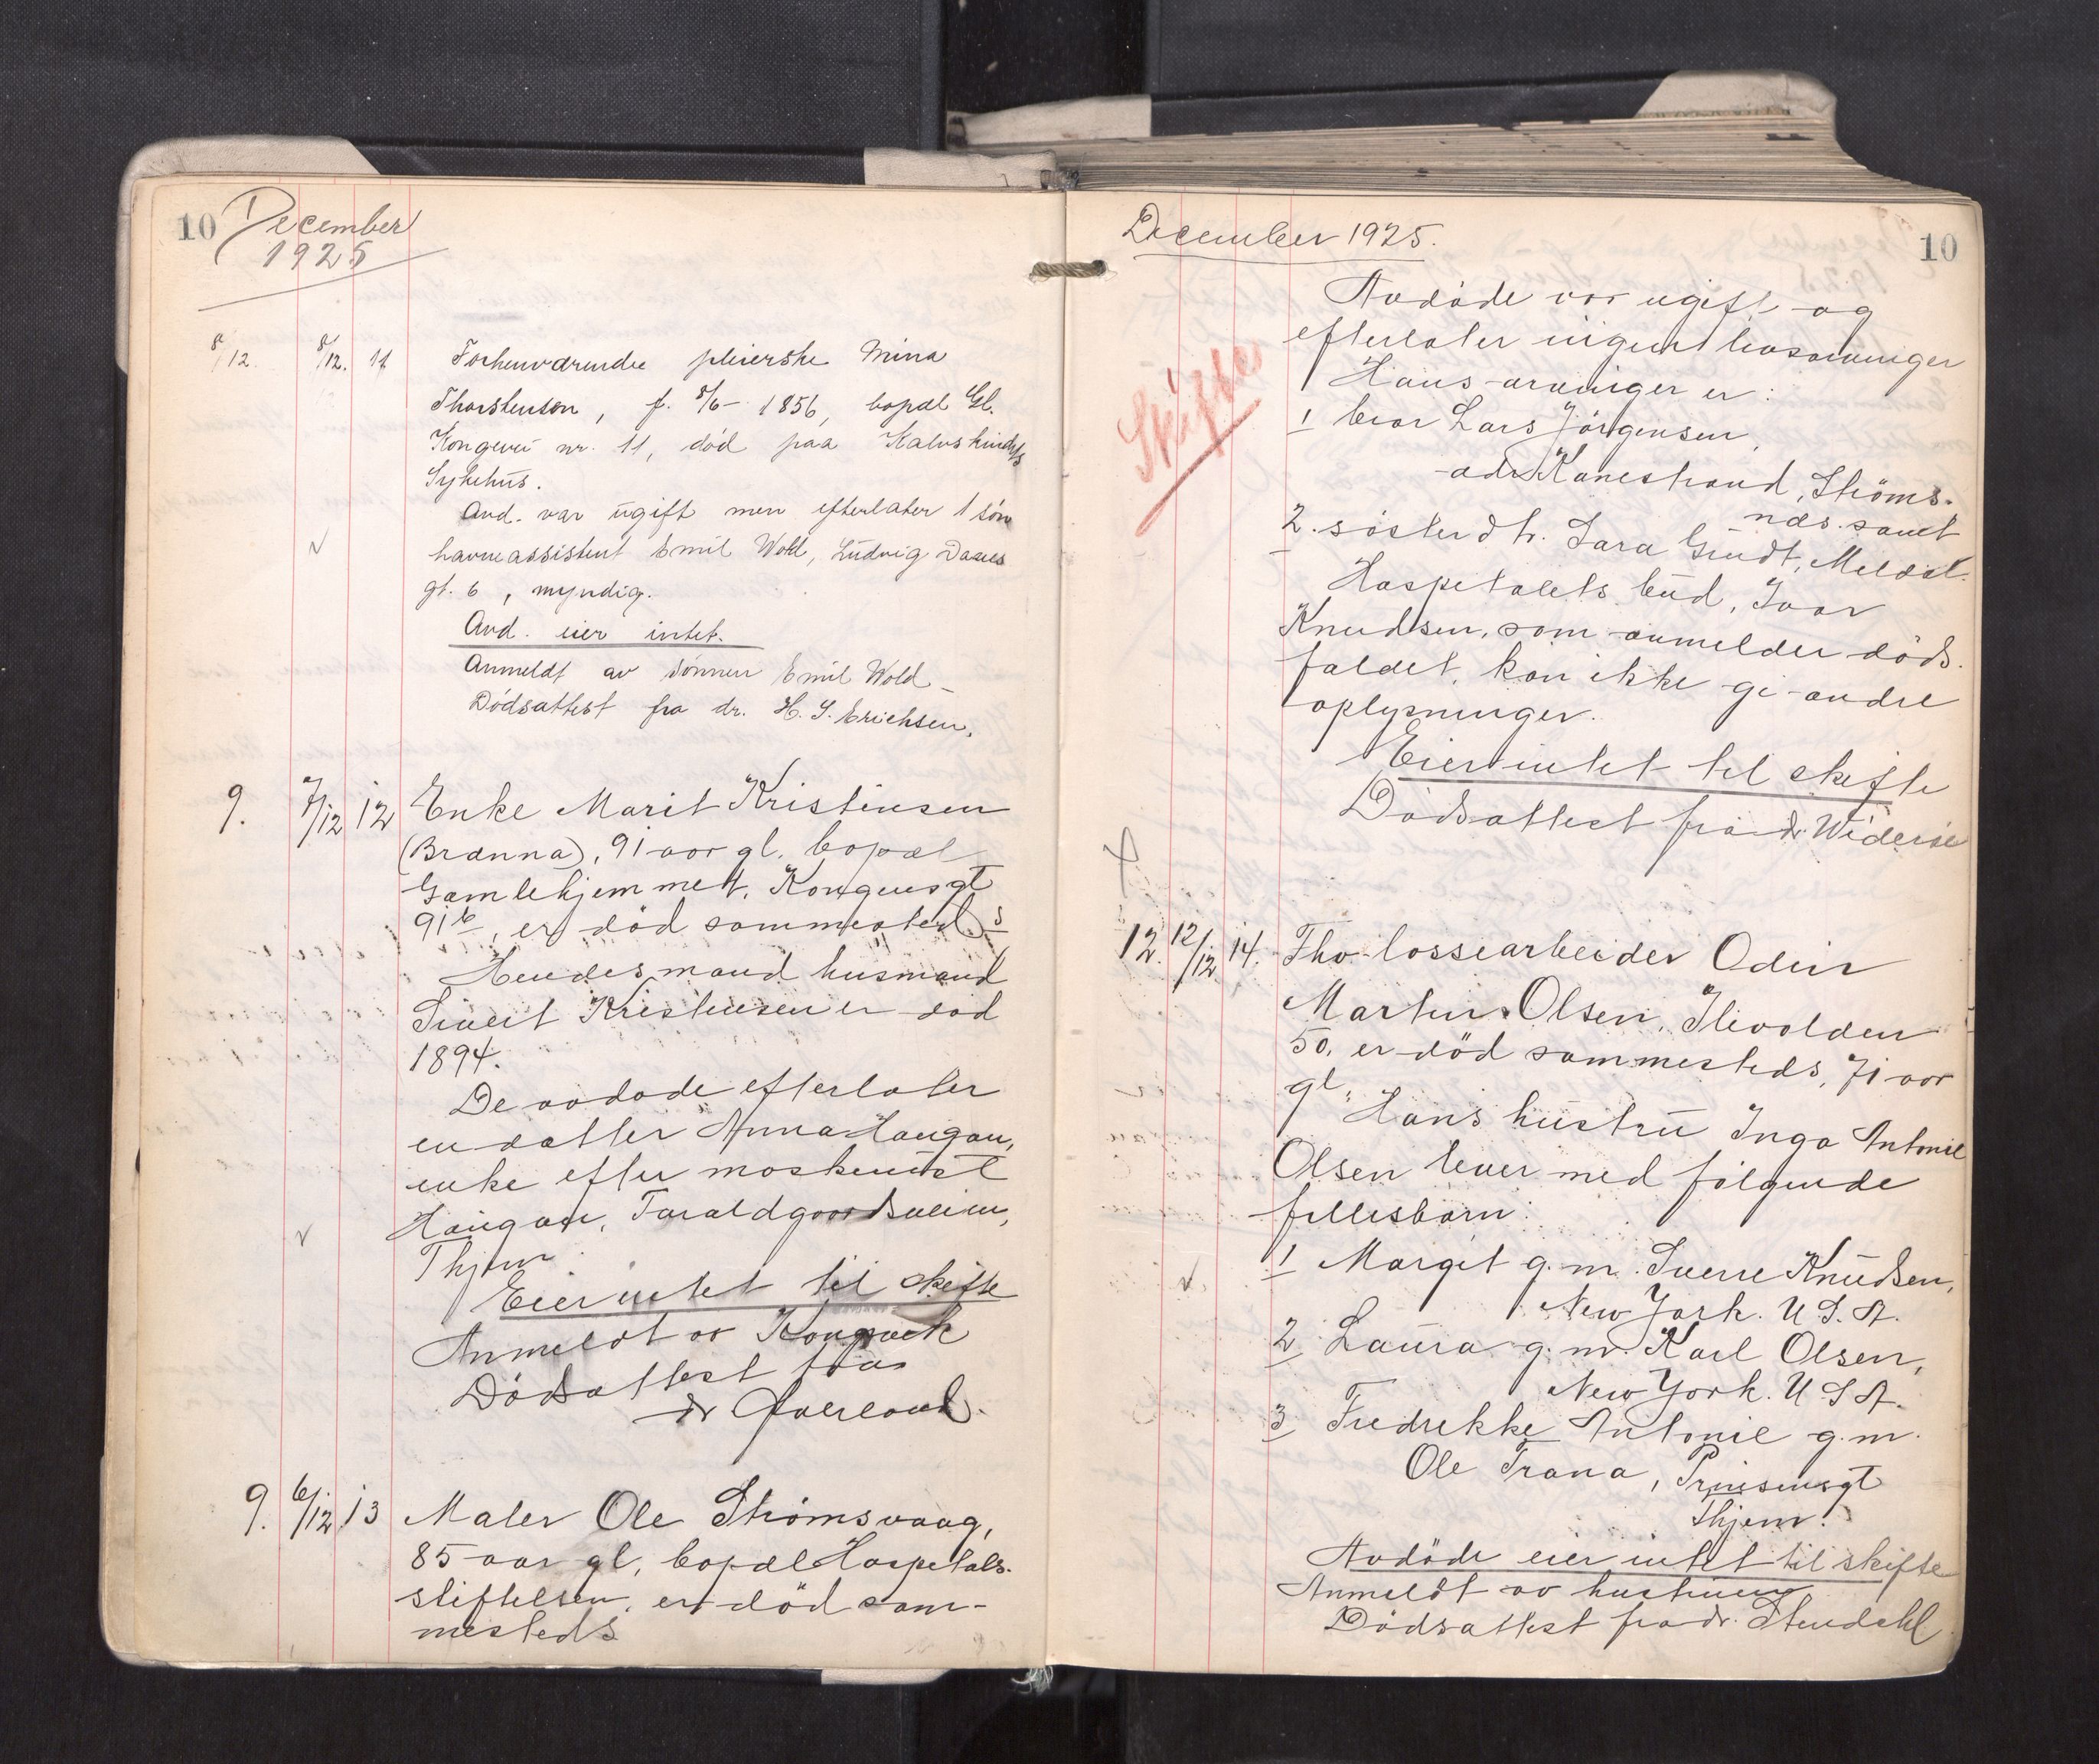 10 December
1925
8/12. 8/12. 11 Forhenværende pleierske Mina
Thorstensen, f. 8/6- 1856, bopæl Gl.
Kongevei nr. 11, död paa Kalvskindets
Sykehus.
Avd. var ugift men efterlater 1 sön
havneassistent Emil Wold, Ludvig Daaes
gt. 6, myndig.
Avd. eier intet.
Anmeldt av sönnen Emil Wold
Dödsattest fra dr. H. S. Erichsen.
9. 7/12 12 Enke Marit Kristensen
(Brænna), 91 aar gl. bopæl
Gamlehjemmet, Kongensgt
91b, er död sammesteds
Hendes mand husmand
Sivert Kristensen er död
1894.
De avdöde efterlater
en datter Anna Haugan,
enke efter maskinist
Haugan, Taraldgaard
Thjem
Eier intet til skifte
Anmeldt av
Dödsattest fra
dr
9. 6/12 13 Maler Ole Strömsvaag,
85 aar gl, bopæl Hospitals-
stiftelsen, er död sam-
mesteds
December 1925. 10
Avdöde var ugift og
efterlater ingen livsarvinger
Skifte
Hans arvinger er:
1 bror Lars Jörgensen,
adr Kanestraand, Ströms-
næs. samt
2. sösterdtr. Sara Gundt, Meldal.
Hospitalets bud, Ivar
Knudsen, som anmelder döds-
faldet, kan ikke gi andre
oplysninger.
Eier intet til skifte
Dödsattest fra dr. Wideröe
12. 12/12 14. Fhv. lossearbeider Odin
Martin Olsen, Ilevolden
50, er död sammesteds, 71 aar
gl.
Hans hustru Inga Antonie
Olsen lever med fölgende
fællesbarn:
1 Margit g. m. Sverre Knudsen,
New York. U. S. A.
2 Laura g. m. Karl Olsen,
New York. U S A.
3 Fredrekke Antonie g. m.
Ole Trana, Prinsensgt
Thjem.
Avdöde eier intet til skifte
Anmeldt av hustruen
Dödsattest fra dr. Stendahl